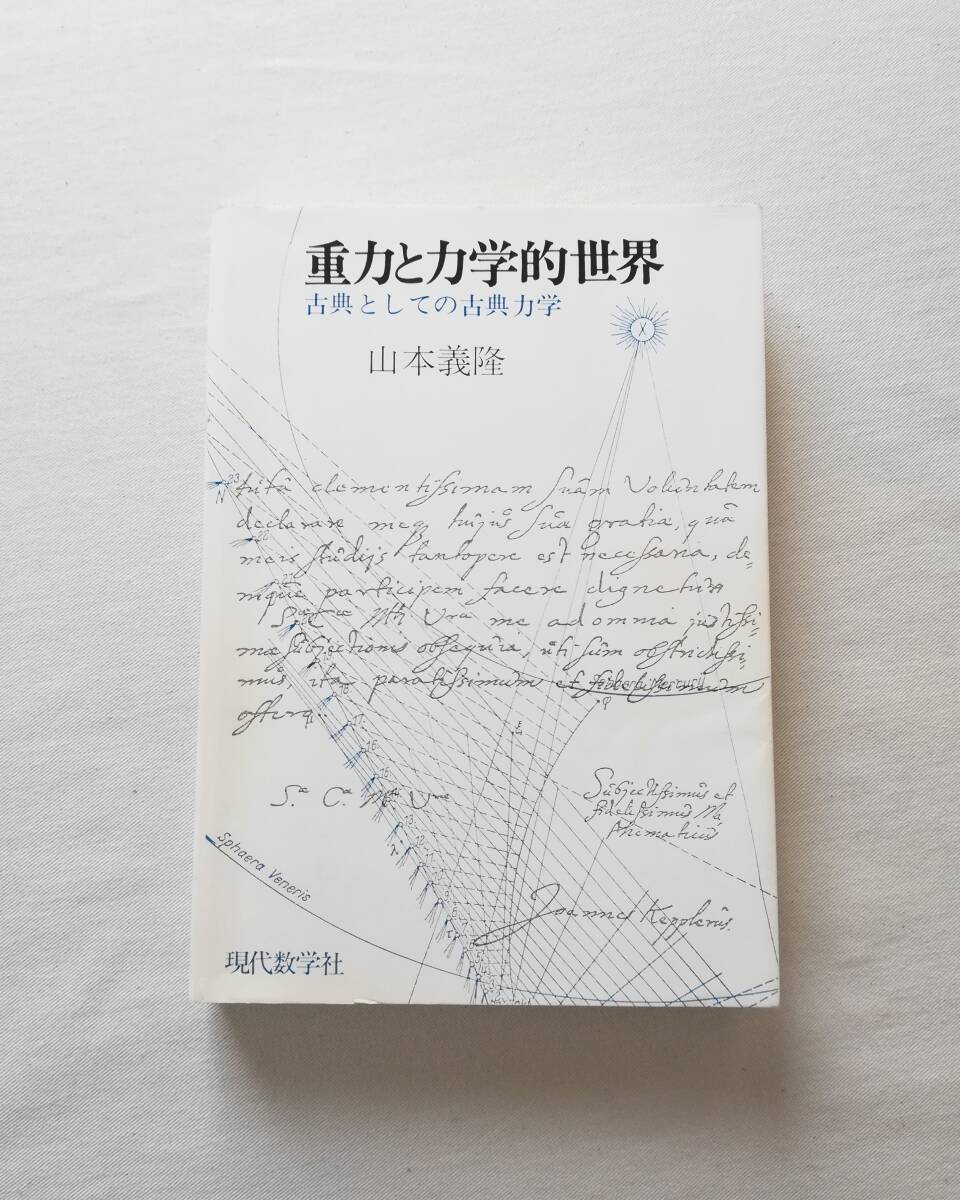 重力と力学的世界
古典としての古典力学
山本義隆
tutâ clementissimam suâm Voluntatem
declarare meq, suâ gratia, quâ
meis studijs tantopere est necessaria, de=
participem facere dignetur
me ad omnia justissi=
subjectionis obsequia,
mus, ita paratissimum et fidelissimum
offero.
Sphaera Mercurij
S.ᵃ C.ᵃ M. Vrae
Subjectissimus et
fidelissimus Ma
thematicus
Sphaera Veneris
Joannes Kepplerus.
現代数学社